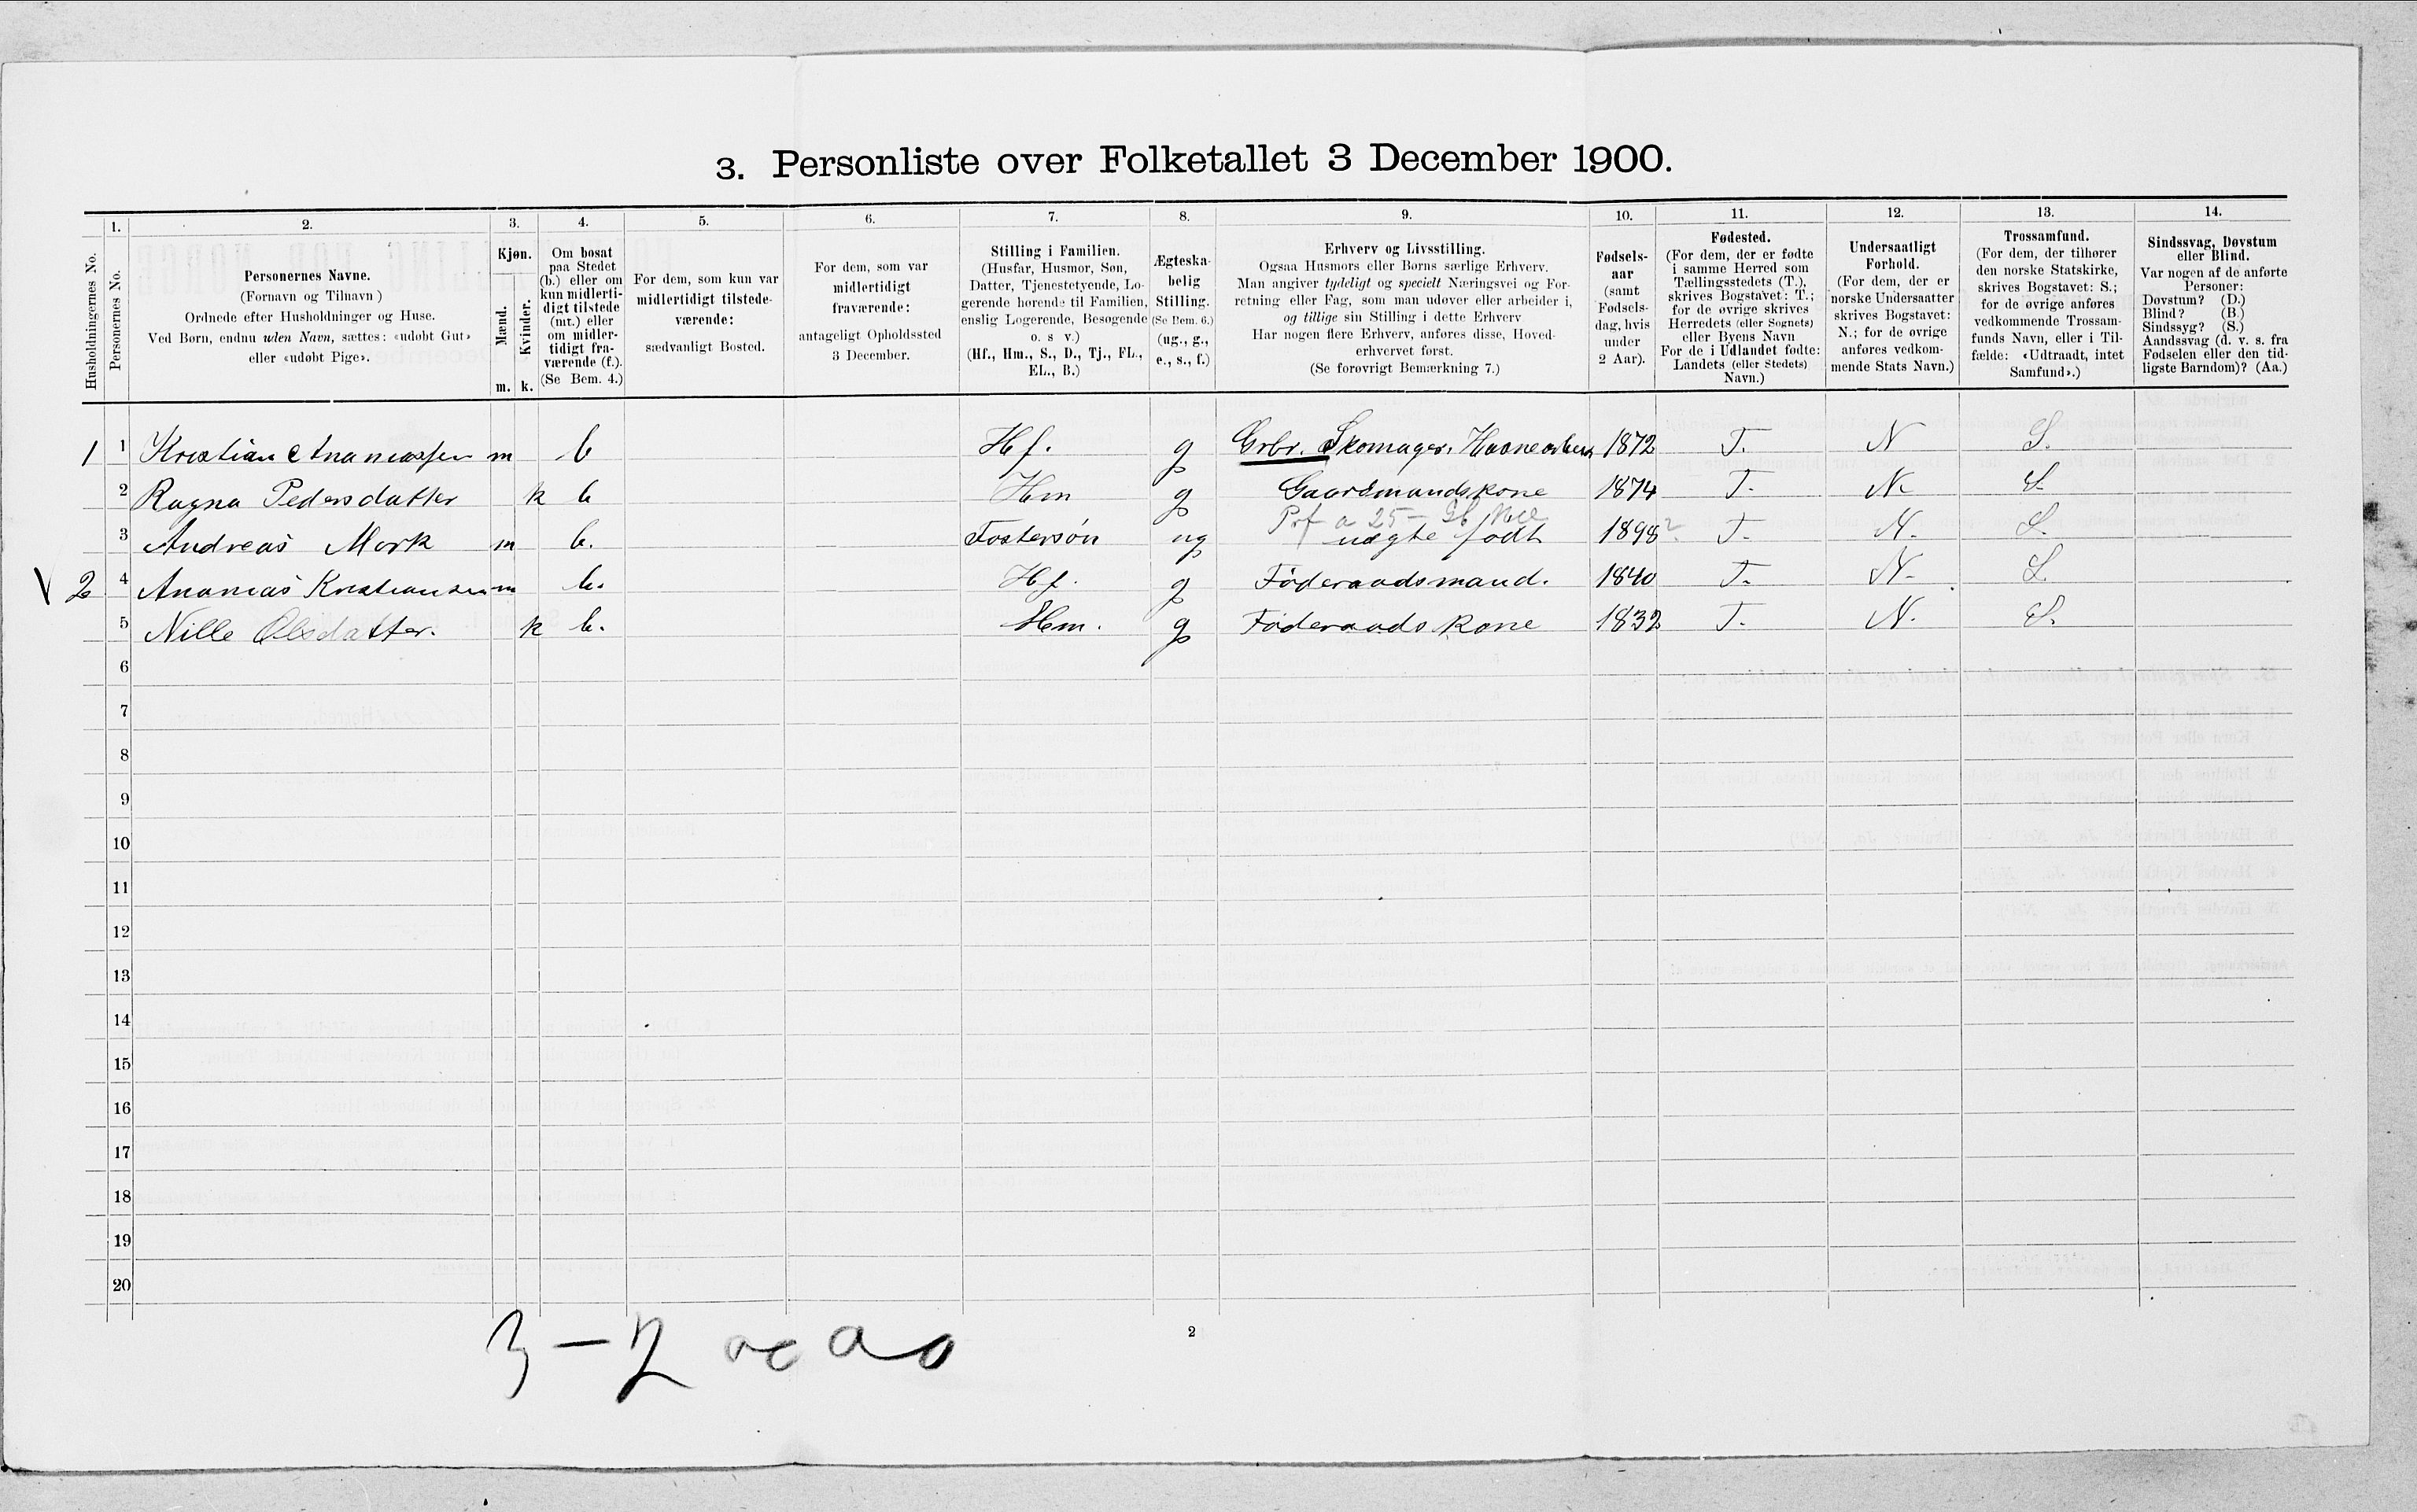 3. Personliste over Folketallet 3 December 1900.
Husholdningernes No.
1.
Personernes No.
2.
Personernes Navne.
(Fornavn og Tilnavn)
Ordnede efter Husholdninger og Huse.
Ved Børn, endnu uden Navn, sættes: «udøbt Gut»
eller «udøbt Pige».
3.
Kjøn.
Mænd.
Kvinder.
m. k.
4.
Om bosat
paa Stedet
(b.) eller om
kun midlerti-
digt tilstede
(mt.) eller
om midler-
tidigt fra-
værende (f.).
(Se Bem. 4.)
5.
For dem, som kun var
midlertidigt tilstede-
værende:
sædvanligt Bosted.
6.
For dem, som var
midlertidigt
fraværende:
antageligt Opholdssted
3 December.
7.
Stilling i Familien.
(Husfar, Husmor, Søn,
Datter, Tjenestetyende, Lo-
gerende hørende til Familien,
enslig Logerende, Besøgende
o. s v.)
(Hf., Hm., S., D., Tj., FL.,
EL., B.)
8.
Ægteska-
belig
Stilling.
(Se Bem. 6.)
(ug., g.,
e., s., f.)
9.
Erhverv og Livsstilling.
Ogsaa Husmors eller Børns særlige Erhverv.
Man angiver tydeligt og specielt Næringsvei og For-
retning eller Fag, som man udøver eller arbeider i,
og tillige sin Stilling i dette Erhverv
Har nogen flere Erhverv, anføres disse, Hoved-
erhvervet først.
(Se forøvrigt Bemærkning 7.)
10.
Fødsels-
aar
(samt
Fødsels-
dag, hvis
under
2 Aar).
11.
Fødested.
(For dem, der er fødte
i samme Herred som
Tællingsstedets (T.),
skrives Bogstavet: T.;
for de øvrige skrives
Herredets (eller Sognets)
eller Byens Navn
For de i Udlandet fødte:
Landets (eller Stedets)
Navn.)
12.
Undersaatligt
Forhold.
(For dem, der er
norske Undersaatter
skrives Bogstavet:
N.; for de øvrige
anføres vedkom-
mende Stats Navn.)
13.
Trossamfund.
(For dem, der tilhører
den norske Statskirke,
skrives Bogstavet: S.;
for de øvrige anføres
vedkommende Trossam-
funds Navn, eller i Til-
fælde: «Udtraadt, intet
Samfund».)
14.
Sindssvag, Døvstum
eller Blind.
Var nogen af de anførte
Personer:
Døvstum? (D.)
Blind? (B.)
Sindssyg? (S.)
Aandssvag (d. v. s. fra
Fødselen eller den tid-
ligste Barndom)? (Aa.)
1 1 Kristian Ananiassen m b Hf. g Grbr. Skomager. 1872 T. N S.
2 Ragna Pedersdatter k b Hm g Gaardmandskone 1874 T. N. S.
3 Andreas Mork m b. Fostersøn ug uægte født 1898 T. N. S.
2 4 Ananias Kristiansen m b. Hf. g Føderaadsmand. 1840 T. N. S.
5 Nille Olsdatter. k b. Hm. g Føderaads kone 1832 T. N. S.
6
7
8
9
10
11
12
13
14
15
16
17
18
19
20
3 – 2
2